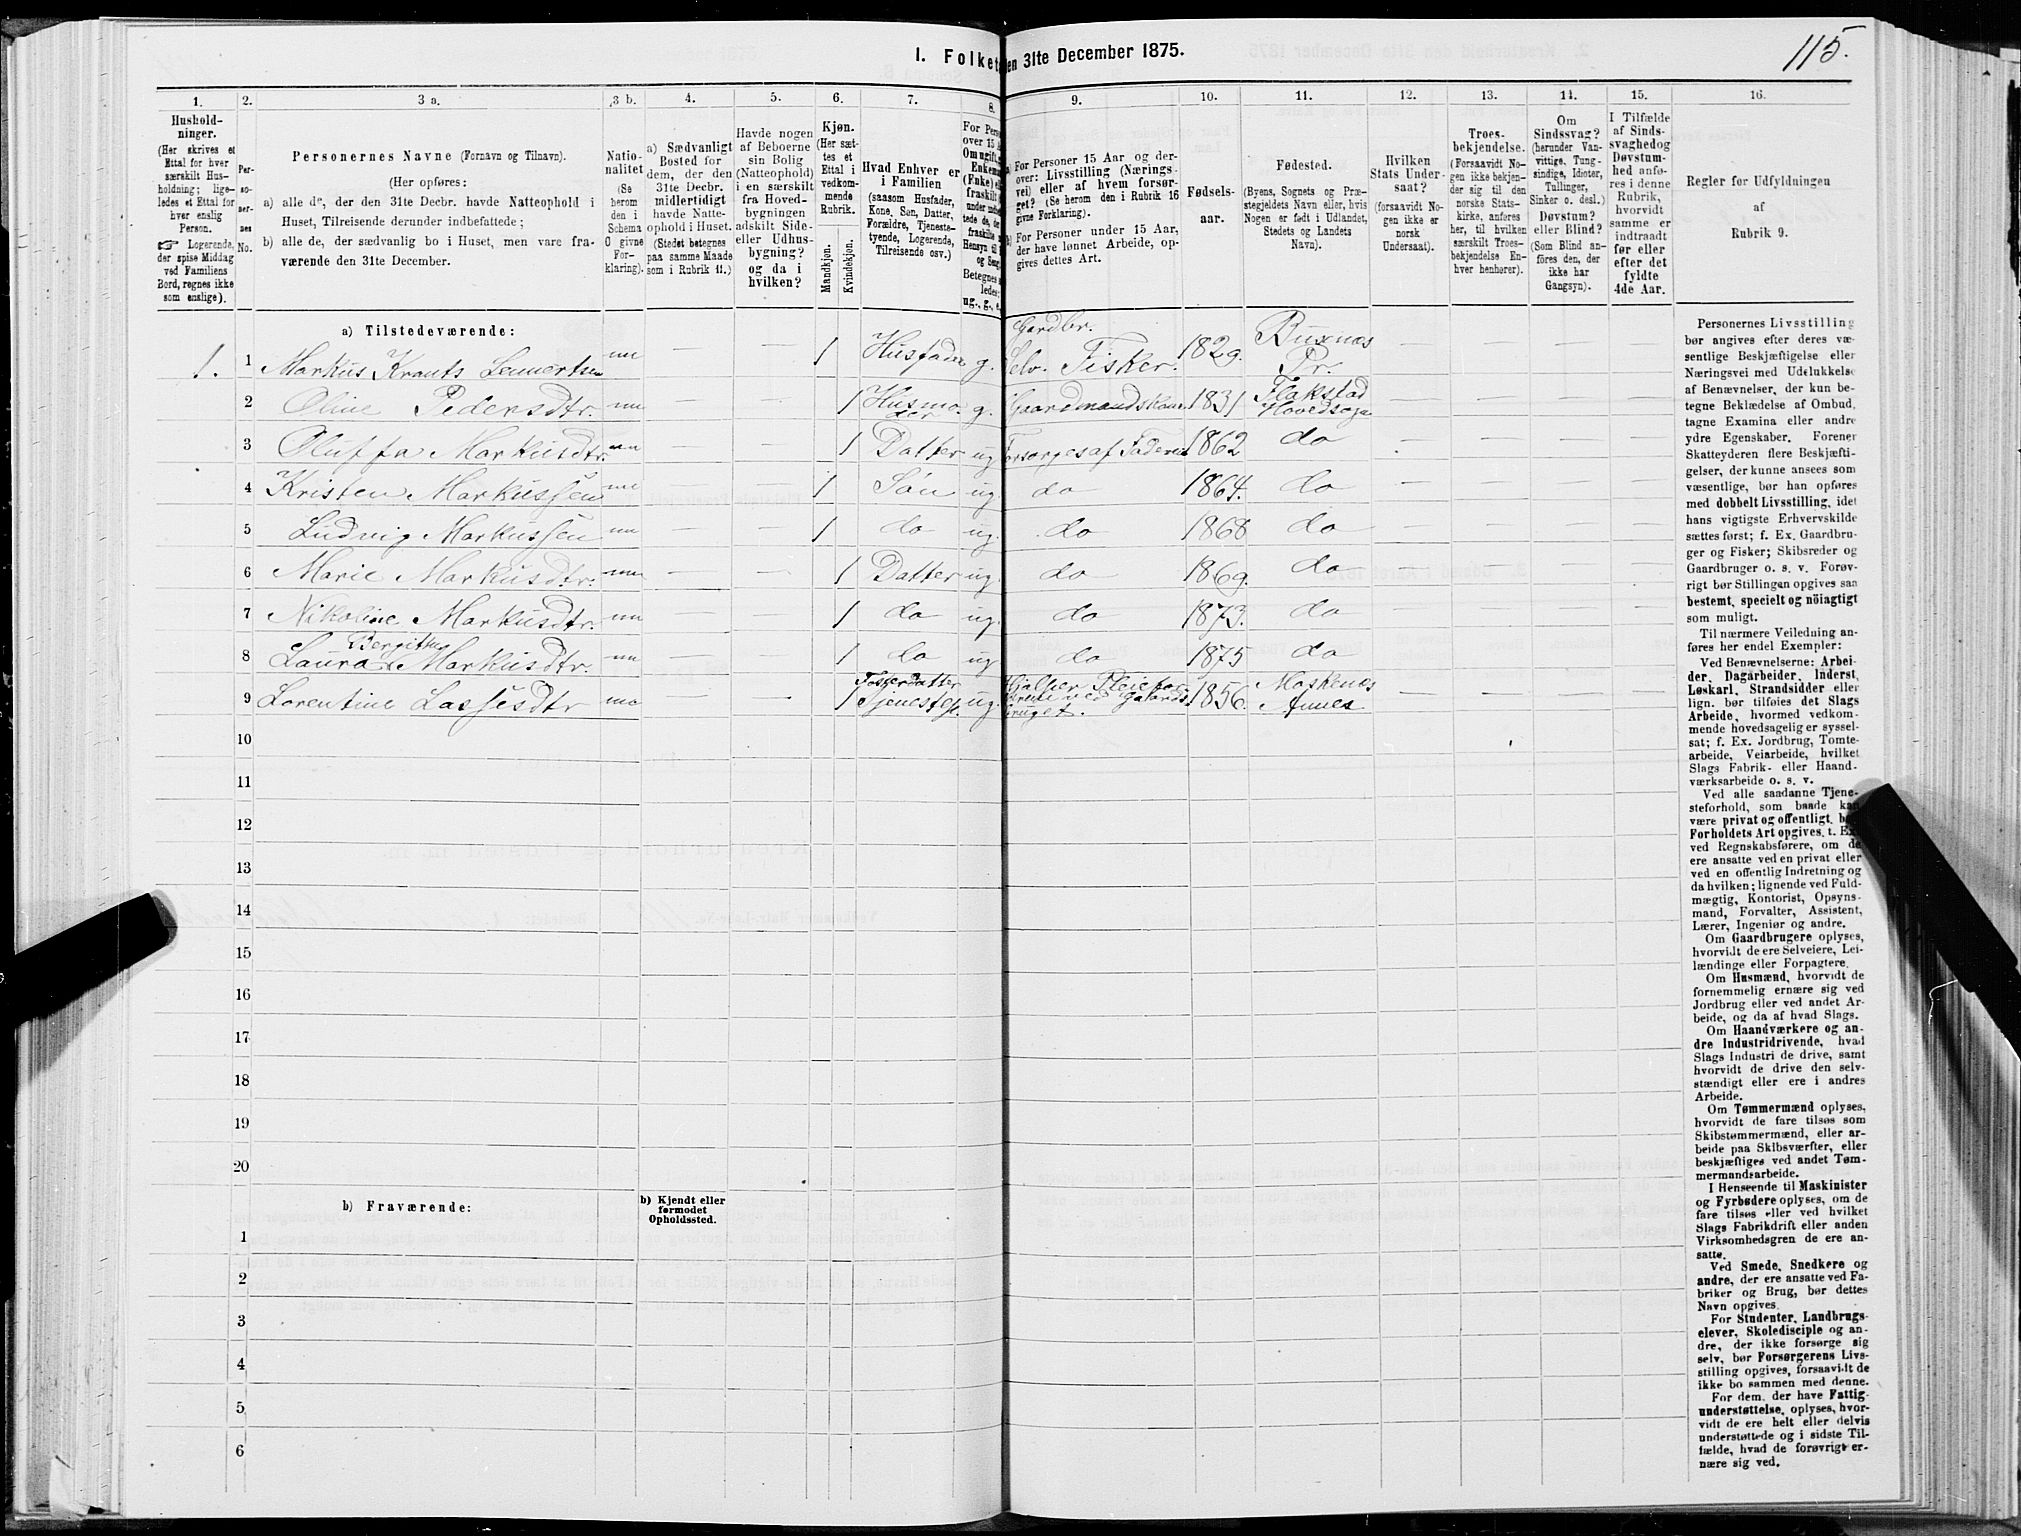 115.
1. Folket
en 31te December 1875.
1.
2.
3 a.
3 b.
4.
5.
6.
7.
8.
9.
10.
11.
12.
13.
14.
15.
16.
Hushold-
ninger.
(Her skrives et
Ettal for hver
særskilt Hus-
holdning; lige-
ledes et Ettal for
hver enslig
Person.
☞ Logerende,
der spise Middag
ved Familiens
Bord, regnes ikke
som enslige).
Per-
so-
ner-
nes
No.
Personernes Navne (Fornavn og Tilnavn).
(Her opføres:
a) alle de, der den 31te Decbr. havde Natteophold i
Huset, Tilreisende derunder indbefattede;
b) alle de, der sædvanlig bo i Huset, men vare fra-
værende den 31te December.
Natio-
nalitet
(Se
herom
den i
Schema
O givne
For-
klaring).
a) Sædvanligt
Bosted for
dem, der den
31te Decbr.
midlertidigt
havde Natte-
ophold i Huset.
(Stedet betegnes
paa samme Maade
som i Rubrik 11.)
Havde nogen
af Beboerne
sin Bolig
(Natteophold)
i en særskilt
fra Hoved-
bygningen
adskilt Side-
eller Udhus-
bygning?
og da i
hvilken?
Kjøn.
(Her sæt-
tes et
Ettal i
vedkom-
mende
Rubrik.
Mandkjøn.
Kvindekjøn.
Hvad Enhver er
i Familien
(saasom Husfader,
Kone, Søn, Datter,
Forældre, Tjeneste-
tyende, Logerende,
Tilreisende osv.)
For Perso
over 15 A
Om ugift,
Enkem
(Enke) e
fraskilt
under
tede de,
fraskilte
Hensyn til
og Seng
Betegnes
ledes:
ug., g., e,
For Personer 15 Aar og der-
over: Livsstilling (Nærings-
vei) eller af hvem forsør-
get? (Se herom den i Rubrik 16
givne Forklaring).
For Personer under 15 Aar,
der have lønnet Arbeide, op-
gives dettes Art.
Fødsels-
aar.
Fødested.
(Byens, Sognets og Præ-
stegjeldets Navn eller, hvis
Nogen er født i Udlandet,
Stedets og Landets
Navn).
Hvilken
Stats Under-
saat?
(forsaavidt No-
gen ikke er
norsk
Undersaat).
Troes-
bekjendelse.
(Forsaavidt No-
gen ikke bekjen-
der sig til den
norske Stats-
kirke, anføres
her, til hvilken
særskilt Troes-
bekjendelse En-
hver henhører).
Om
Sindssvag?
(herunder Van-
vittige, Tung-
sindige, Idioter,
Tullinger,
Sinker o. desl.)
Døvstum?
eller Blind?
(Som Blind an-
føres den, der
ikke har
Gangsyn).
I Tilfælde
af Sinds-
svaghedog
Døvstum-
hed anfø-
res i denne
Rubrik,
hvorvidt
samme er
indtraadt
før eller
efter det
fyldte
4de Aar.
Regler for Udfyldningen
af
Rubrik 9.
a) Tilstedeværende:
1. 1 Markus Krants Lennertsen nn — — 1 Husfader g. Gardbr. Selv. Fisker. 1829. Buxnes Pr.
2 Oline Pedersdtr. nn — — 1 Husmoder g. Gaardmandskone 1831 Flakstad Hovedsogn — — — —
3 Oluffa Markusdtr. nn — — 1 Datter ug Forsørges af Faderen 1862 do — — — —
4 Kristen Markussen nn — — 1 Søn ug. do 1864. do — — — —
5 Ludvig Markussen nn — — 1 do ug. do 1868 do — — — —
6 Marie Markusdtr. nn — — 1 Datter ug. do 1869. do — — — —
7 Nikoline Markusdtr. nn — — 1 do ug. do 1873. do — — — —
8 Laura Bergitha Markusdtr. nn — — 1 do ug do 1875 do — — — —
9 Lorentine Lassesdtr nn — — 1 Fosterdatter Tjenestepi. ug. Hjælper Pleiefor ved Gaards bruget. 1856. Moskenes — — — —
10
11
12
13
14
15
16
17
18
19
20
b) Fraværende:
b) Kjendt eller
formodet
Opholdssted.
1
2
3
4
5
6
Personernes Livsstilling
bør angives efter deres væ-
sentlige Beskjæftigelse eller
Næringsvei med Udelukkelse
af Benævnelser, der kun be-
tegne Beklædelse af Ombud,
tagne Examina eller andre
ydre Egenskaber. Forener
Skatteyderen flere Beskjæfti-
gelser, der kunne ansees som
væsentlige, bør han opføres
med dobbelt Livsstilling, idet
hans vigtigste Erhvervskilde
sættes først; f. Ex. Gaardbru-
ger og Fisker; Skibsreder og
Gaardbruger o. s. v. Forøv-
rigt bør Stillingen opgives saa
bestemt, specielt og nöiagtigt
som muligt.
Til nærmere Veiledning an-
føres her endel Exempler:
Ved Benævnelserne: Arbei-
der, Dagarbeider, Inderst,
Løskarl, Strandsidder eller
lign. bør tilføies det Slags
Arbeide, hvormed vedkom-
mende hovedsagelig er syssel-
sat; f. Ex. Jordbrug, Tomte-
arbeide, Veiarbeide, hvilket
Slags Fabrik- eller Haand-
værksarbeide o. s. v.
Ved alle saadanne Tjene-
steforhold, som baade kan
være privat og offentligt, bør
Forholdets Art opgives, t. Ex.
ved Regnskabsførere, om de
ere ansatte ved en privat eller
ved en offentlig Indretning og
da hvilken; lignende ved Fuld-
mægtig, Kontorist, Opsyns-
mand, Forvalter, Assistent,
Lærer, Ingeniør og andre.
Om Gaardbrugere oplyses,
hvorvidt de ere Selveiere, Lei-
lændinge eller Forpagtere.
Om Husmænd, hvorvidt de
fornemmelig ernære sig ved
Jordbrug eller ved andet Ar-
beide, og da af hvad Slags.
Om Haandværkere og an-
dre Industridrivende, hvad
Slags Industri de drive, samt
hvorvidt de drive den selv-
stændigt eller ere i andres
Arbeide.
Om Tømmermænd oplyses,
hvorvidt de fare tilsøs som
Skibstømmermænd, eller ar-
beide paa Skibsværfter, eller
beskjæftiges ved andet Tøm-
mermandsarbeide.
I Henseende til Maskinister
og Fyrbødere oplyses, om de
fare tilsøs eller ved hvilket
Slags Fabrikdrift eller anden
Virksomhedsgren de ere an-
satte.
Ved Smede, Snedkere og
andre, der ere ansatte ved Fa-
briker og Brug, bør dettes
Navn opgives.
For Studenter, Landbrugs-
elever, Skoledisciple og an-
dre, der ikke forsørge sig
selv, bør Forsørgerens Livs-
stilling opgives, forsaavidt de
ikke bo sammen med denne.
For dem, der have Fattig-
understøttelse, oplyses, hvor-
vidt de ere helt eller delvis
understøttede og i sidste Til-
fælde, hvad de forøvrigt er-
nære sig ved.